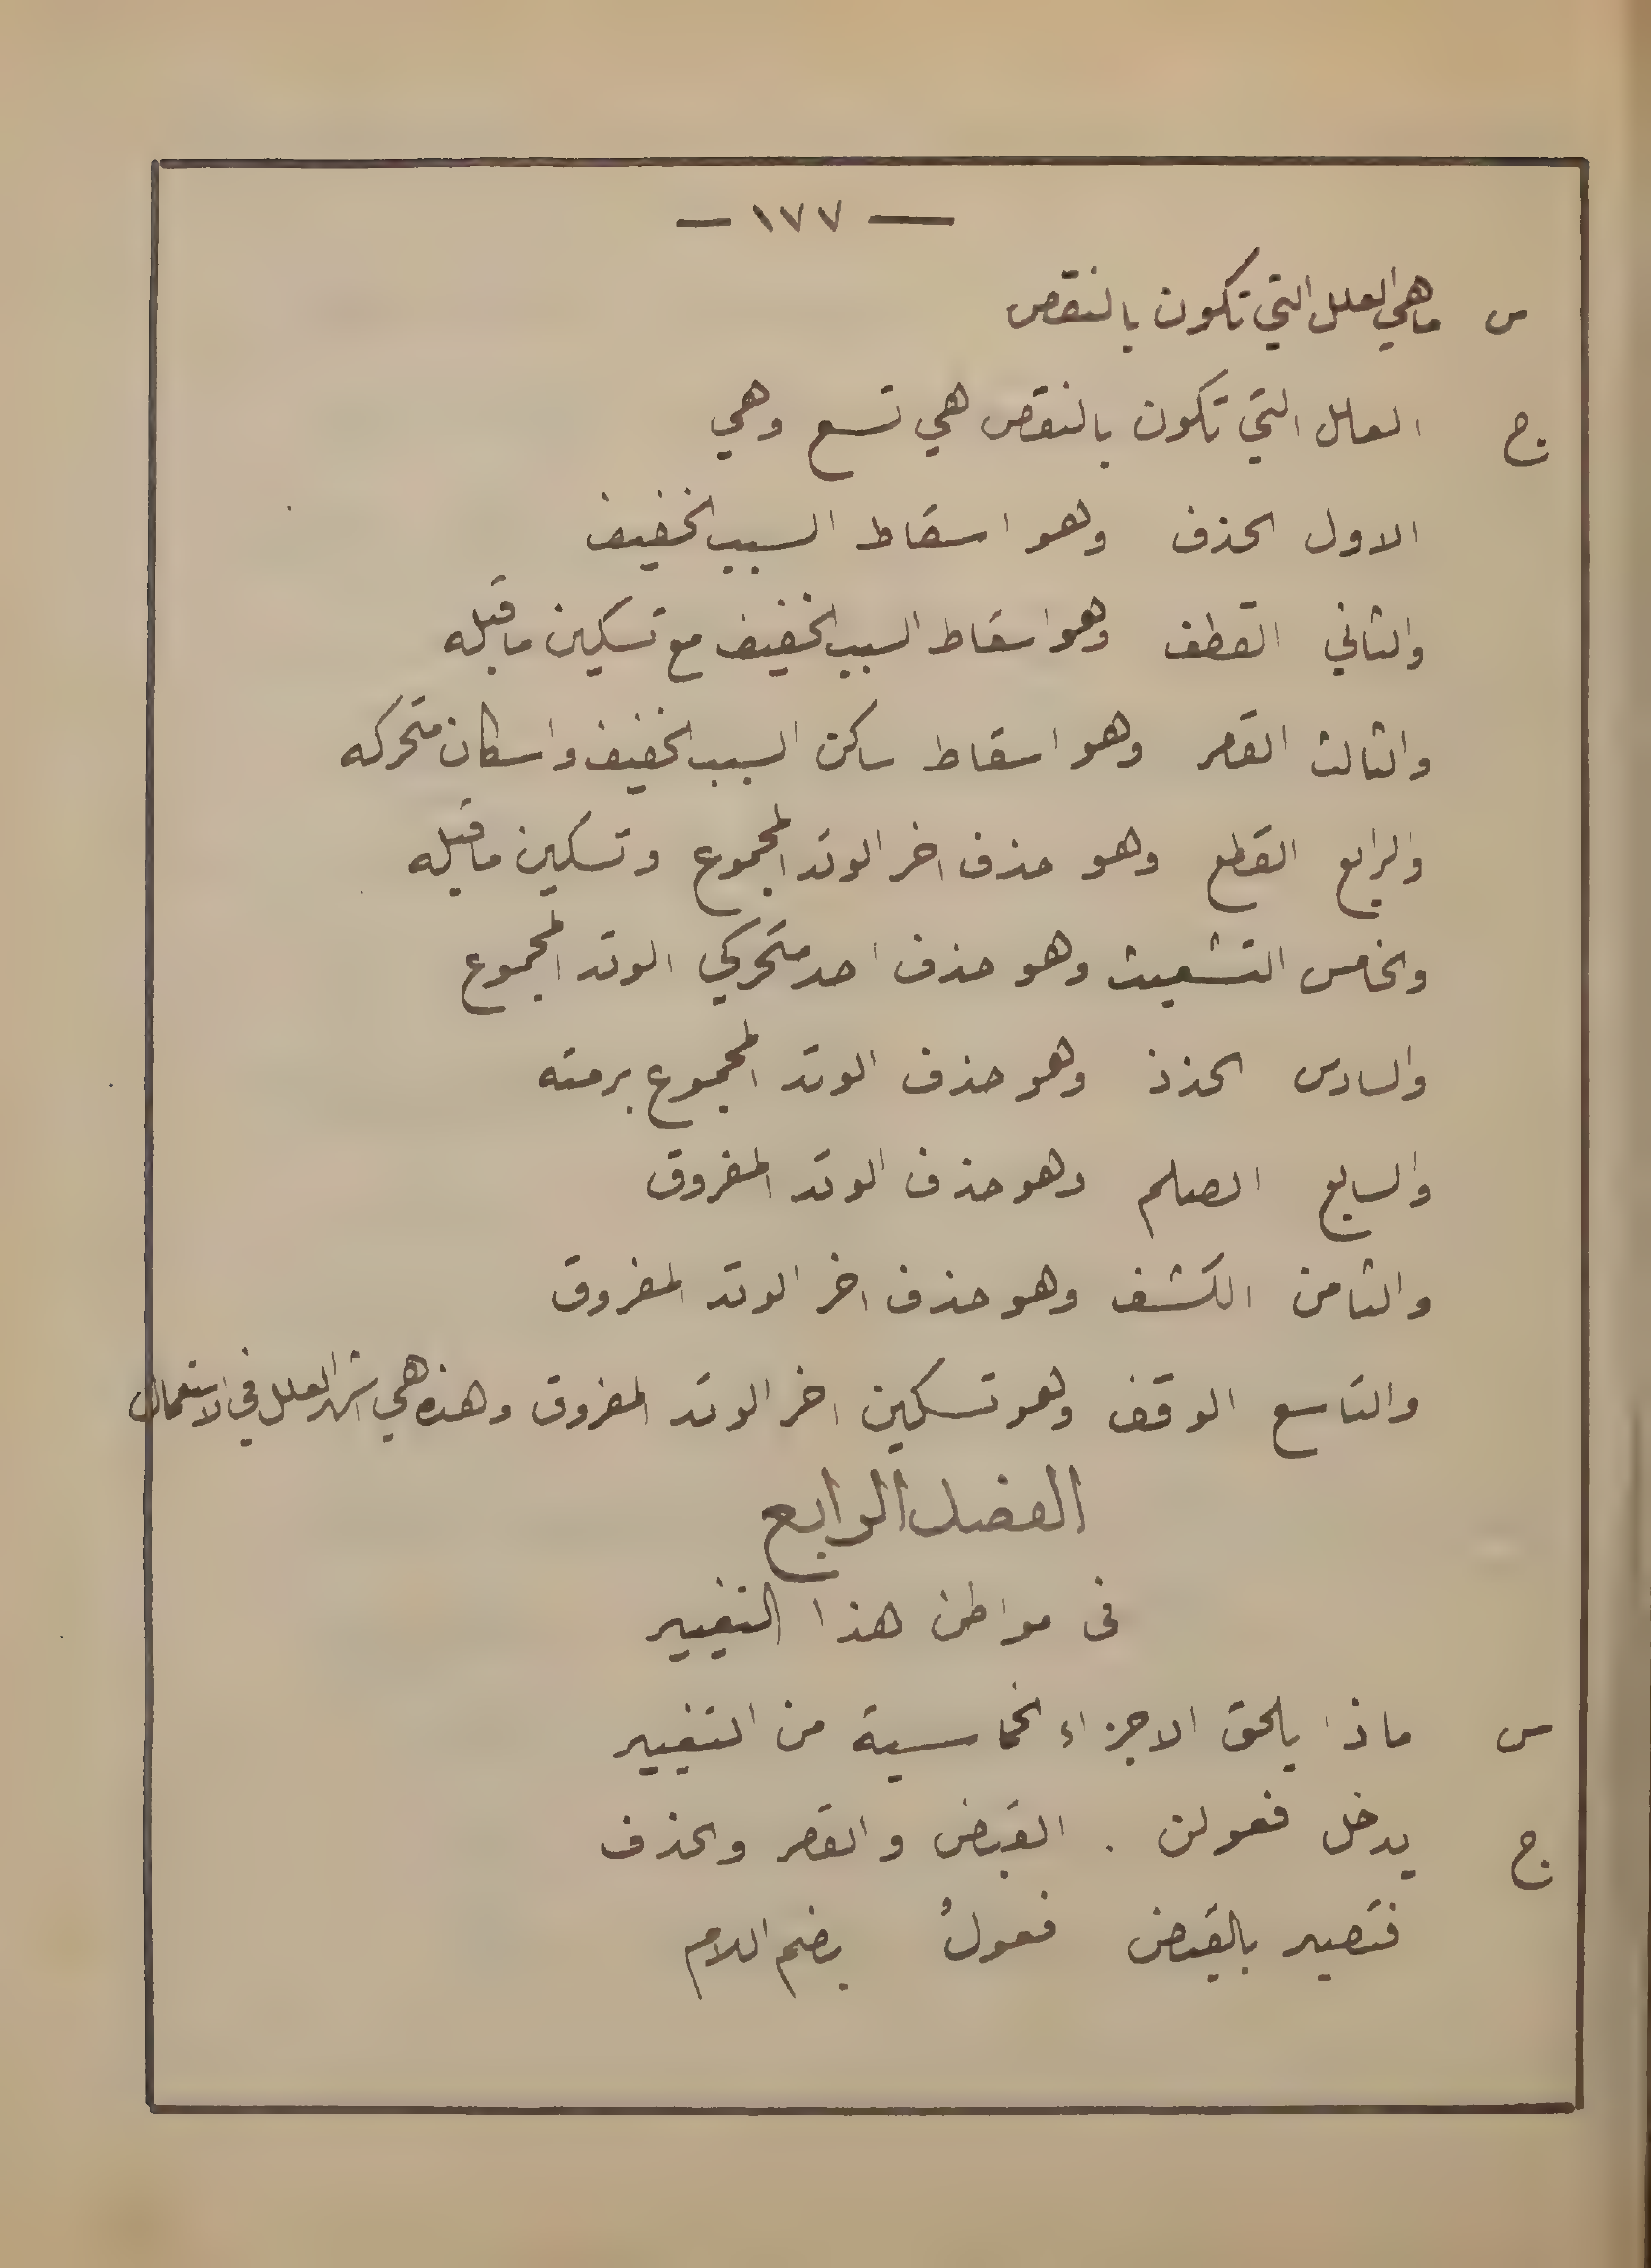 — ١٧٧ —
س ماهي العلل التي تكون بالنقص
ج العلل التي تكون بالنقص هي تسع وهي
الاول الحذف وهو اسقاط السبب الخفيف
والثاني القطف وهو اسقاط السبب الخفيف مع تسكين ما قبله
والثالث القصر وهو اسقاط ساكن السبب الخفيف واسكان متحركه
والرابع القطع وهو حذف اخر الوتد المجموع وتسكين ما قبله
والخامس التشعيث وهو حذف احد متحركي الوتد المجموع
والسادس الحذذ وهو حذف الوتد المجموع برمته
والسابع الصلم وهو حذف الوتد المفروق
والثامن الكشف وهو حذف اخر الوتد المفروق
والتاسع الوقف وهو تسكين اخر الوتد المفروق وهذه هي اشهر العلل في الاستعمال
الفصل الرابع
فى مواطن هذا التغيير
س ماذا يلحق الاجزاء الخماسية من التغيير
ج يدخل فعولن . القبض والقصر والحذف
فتصير بالقبض فعولُ بضم اللام